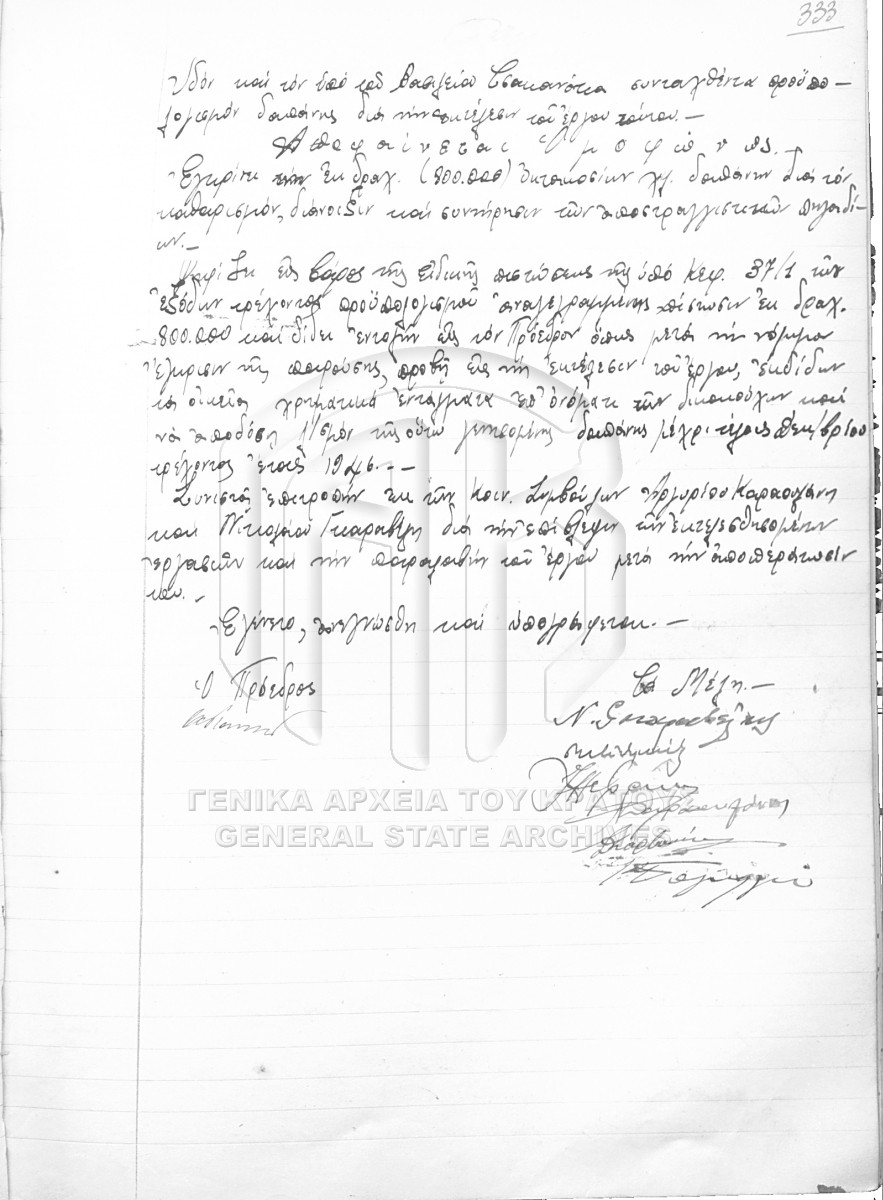 333
Ἰδόν καί τόν ὑπό τοῦ Βασιλείου Τσακανίκα συνταχθέντα προϋπο-
λογισμόν δαπάνης διά τήν ἐκτέλεσιν τοῦ ἔργου τούτου.-
Ἀποφαίνεται Ὁμοφώνως.-
Ἐγκρίνει τήν ἐκ δραχ. (800.000) Ὀκτακοσίων χιλ. δαπάνην διά τόν
καθαρισμόν, διάνοιξιν καί συντήρησιν τῶν ἀποστραγγιστικῶν
ων.-
Ψηφίζει εἰς βάρος τῆς εἰδικῆς πιστώσεως τῆς ὑπό Κεφ. 37/1 τῶν
ἐξόδων τρέχοντος προϋπολογισμοῦ ἀναγεγραμμένης πίστωσιν ἐκ δραχ.
800.000 καί δίδει ἐντολήν εἰς τόν Πρόεδρον ὅπως μετά τήν νόμιμον
ἔγκρισιν τῆς παρούσης προβῇ εἰς τήν ἐκτέλεσιν τοῦ ἔργου, ἐκδίδων
τά οἰκεῖα χρηματικά ἐντάλματα ἐπ' ὀνόματι τῶν δικαιούχων καί
νά ἀποδώσῃ λ/σμόν τῆς οὕτω γενησομένης δαπάνης μέχρι τέλους Δεκεμβρίου
τρέχοντος ἔτους 1946.--
Συνιστᾶ ἐπιτροπήν ἐκ τῶν Κοιν. Συμβούλων Ἀργυρίου Καραογλάνη
καί Νικολάου Γκαραβέλη διά τήν ἐπίβλεψιν τῶν ἐκτελεσθησομένων
ἐργασιῶν καί τήν παραλαβήν τοῦ ἔργου μετά τήν ἀποπεράτωσίν
του.-
Ἐγένετο, ἀνεγνώσθη καί ὑπογράφεται.-
Ὁ Πρόεδρος
Τά Μέλη.-
Ν. Γκαραβέλης
ΓΕΝΙΚΑ ΑΡΧΕΙΑ ΤΟΥ ΚΡΑΤΟΥΣ
GENERAL STATE ARCHIVES